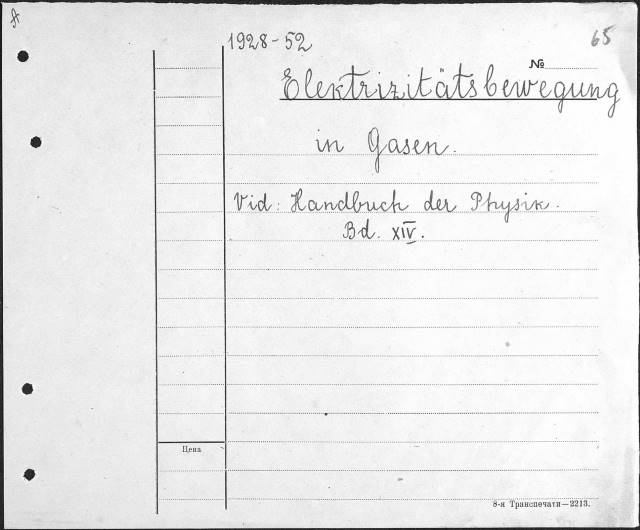 1928-52
65
№
Elektrizitätsbewegung
in Gasen.
Vid: Handbuch der Physik.
Bd. XIV.
Цена
8-я Транспечати—2213.